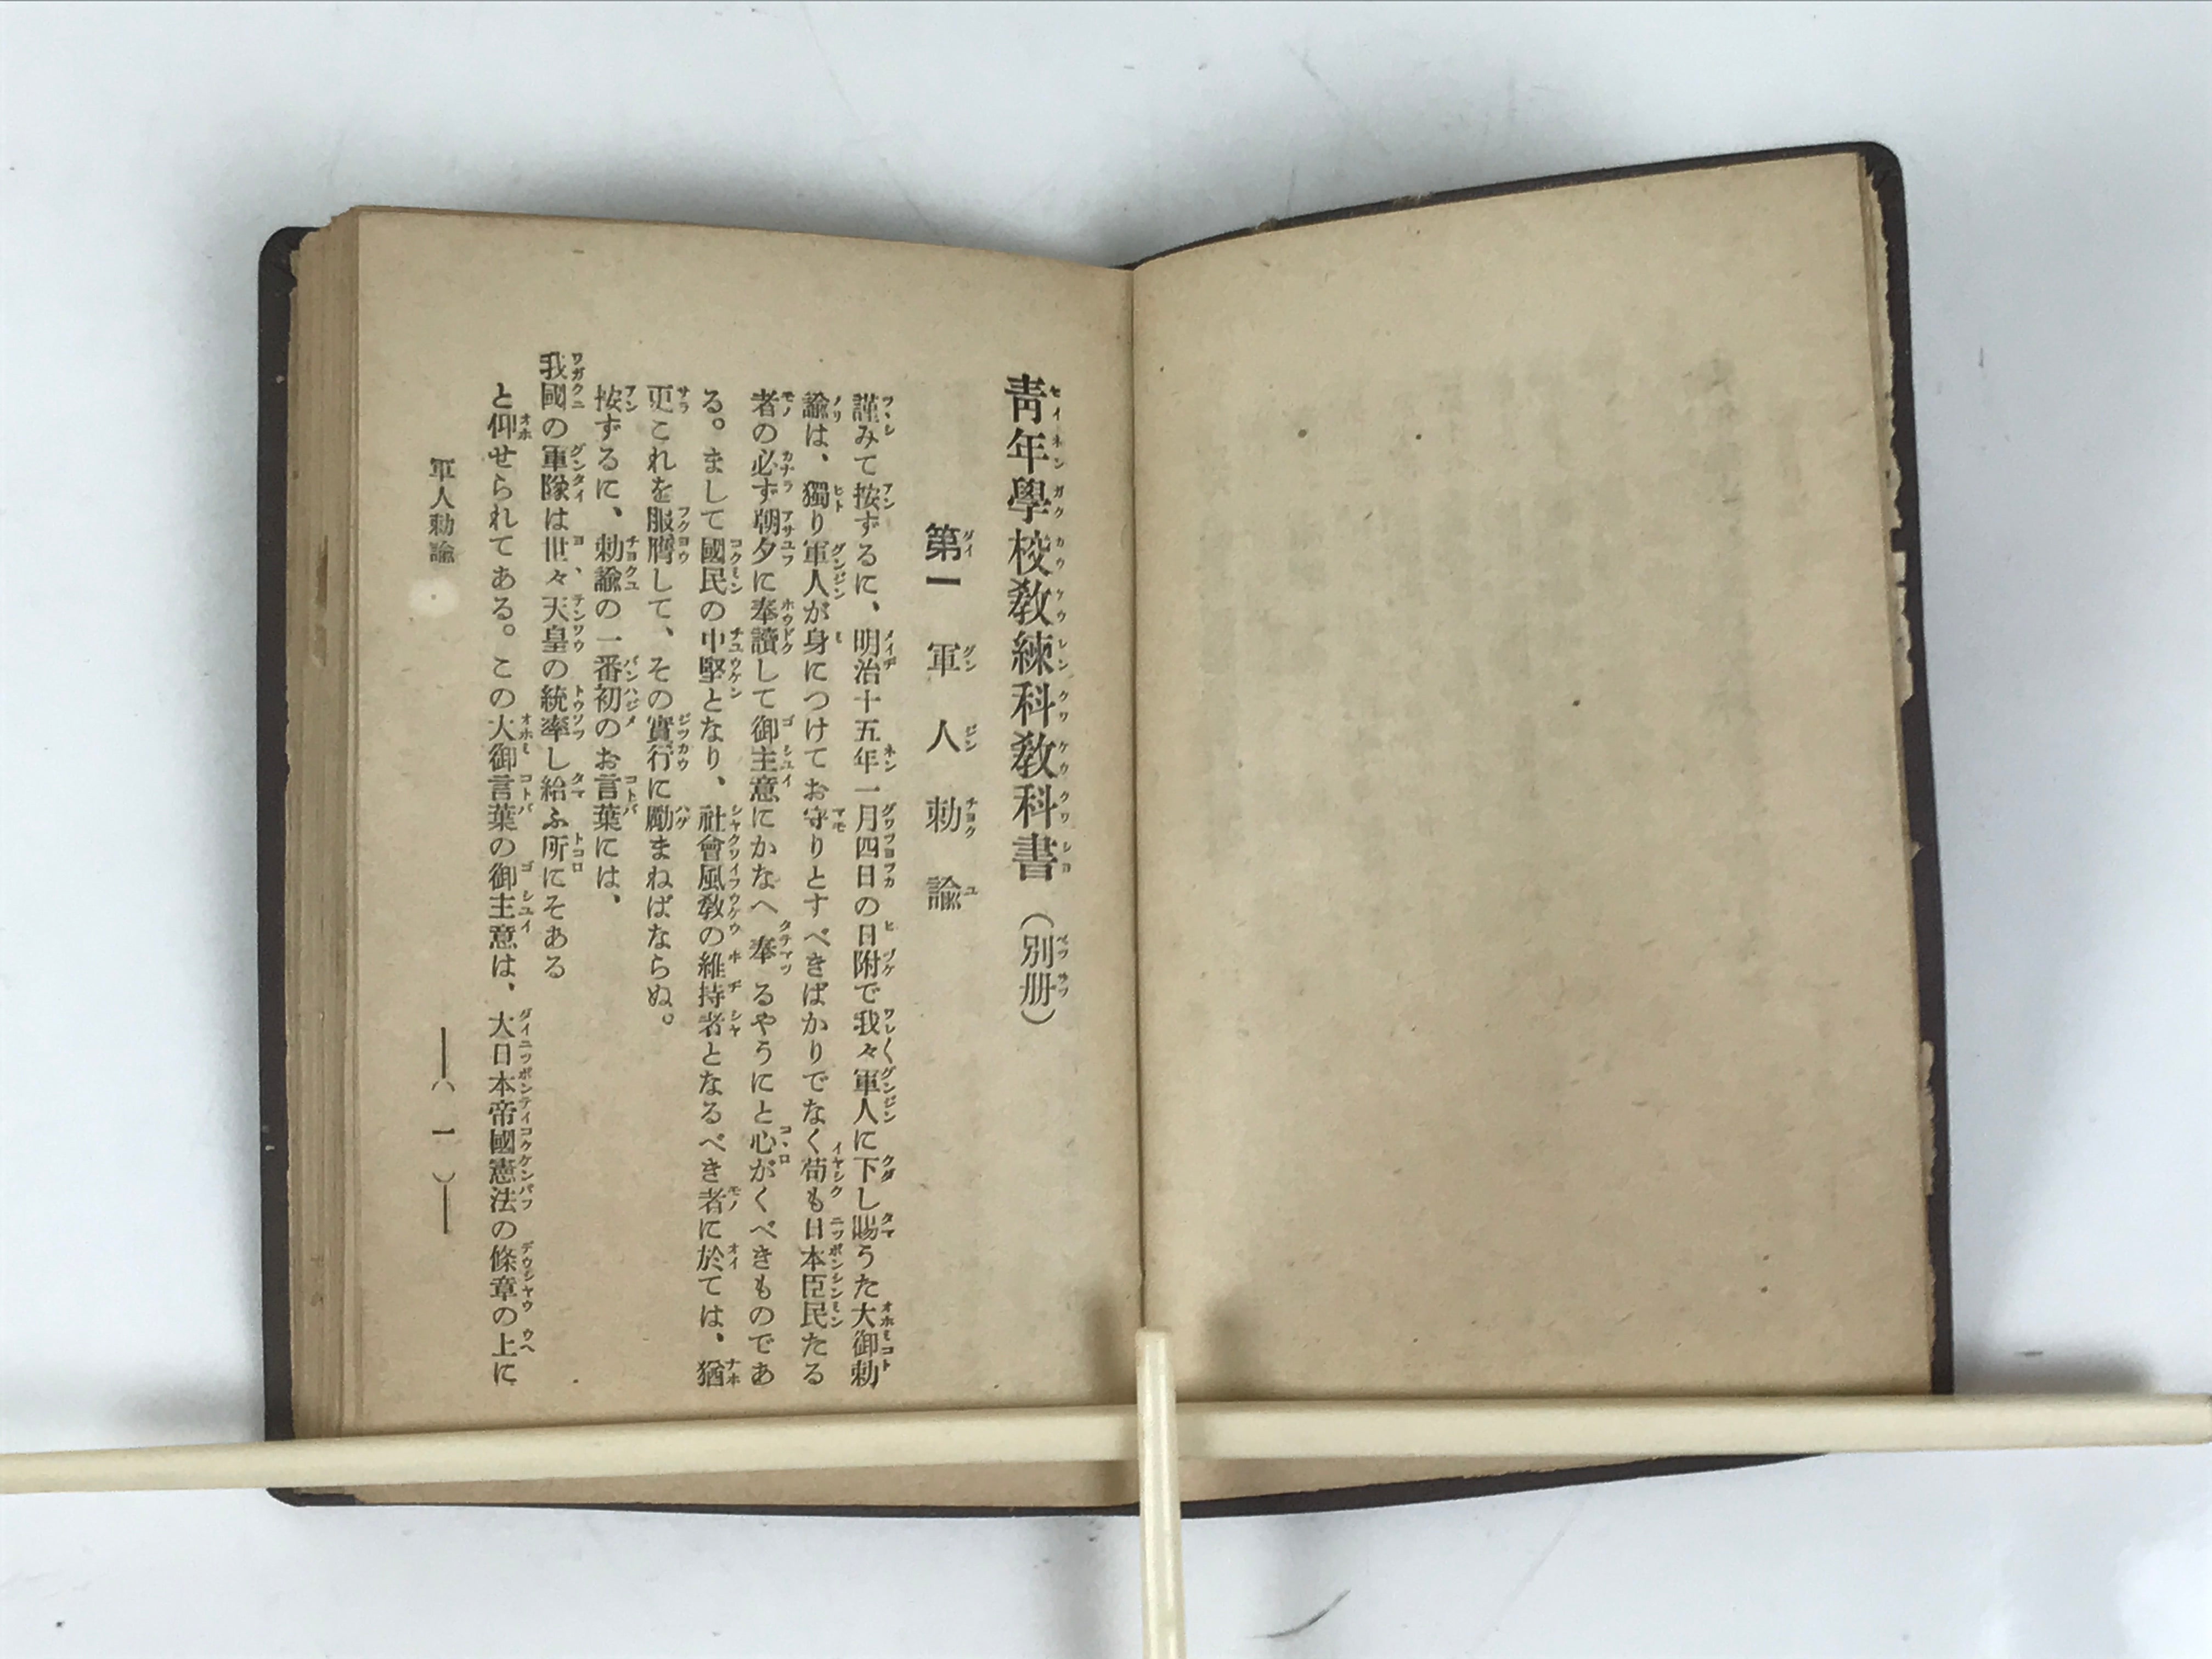 青年學校教練科教科書（別册）
第一　軍人勅諭
謹みて按ずるに、明治十五年一月四日の日附で我々軍人に下し賜うた大御勅
諭は、獨り軍人が身につけてお守りとすべきばかりでなく苟も日本臣民たる
者の必ず朝夕に奉讀して御主意にかなへ奉るやうにと心がくべきものであ
る。まして國民の中堅となり、社會風教の維持者となるべき者に於ては、猶
更これを服膺して、その實行に勵まねばならぬ。
按ずるに、勅諭の一番初のお言葉には、
我國の軍隊は世々天皇の統率し給ふ所にそある
と仰せられてある。この大御言葉の御主意は、大日本帝國憲法の條章の上に
軍人勅諭
（一）